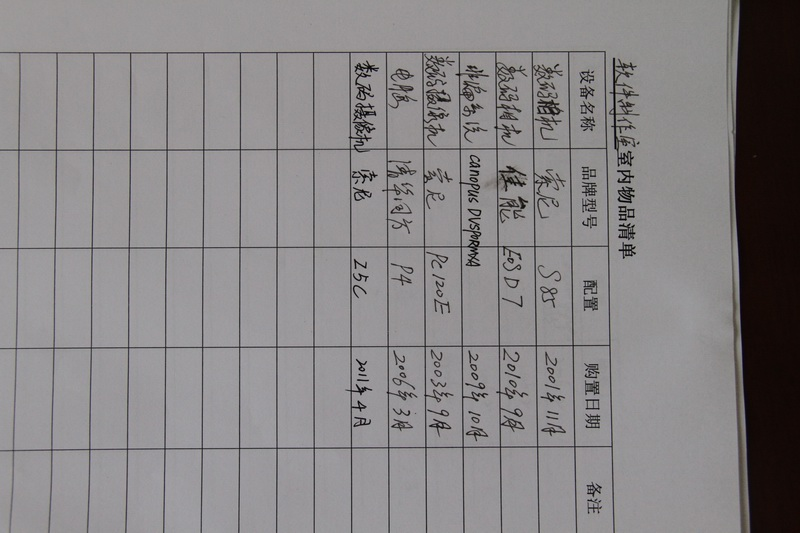 软件制作室室内物品清单
设备名称 品牌型号 配置 购置日期 备注
数码相机 索尼 S85 2001年11月
数码相机 佳能 EOSD7 2010年9月
非编系统 canopus DVSPORMXA 2009年10月
数码摄像机 索尼 PC120E 2003年9月
电脑 清华同方 P4 2006年3月
数码摄像机 索尼 Z5C 2011年4月